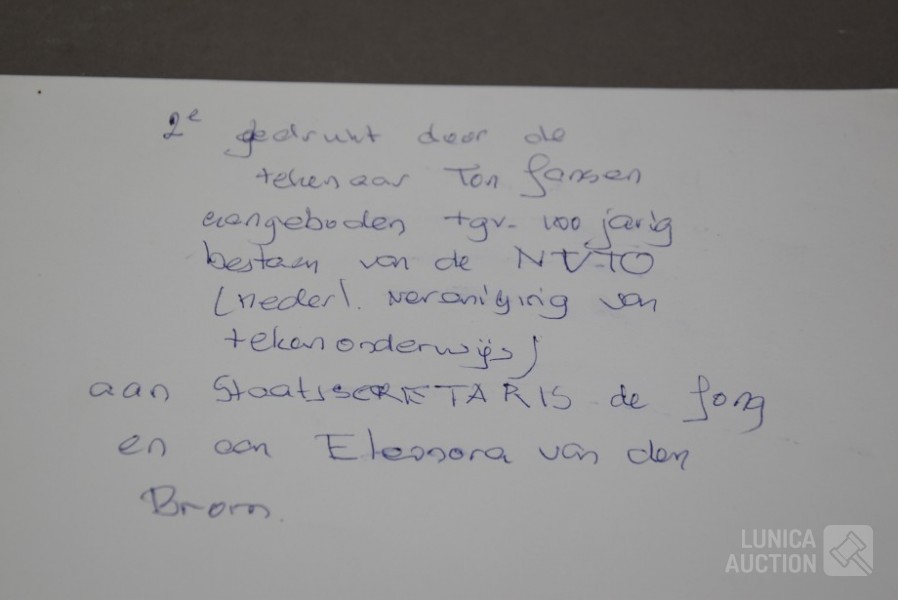 2e gedrukt door de
tekenaar Ton Jansen
aangeboden tgv. 100 jarig
bestaan van de NVTO
(nederl. vereniging van
tekenonderwijs)
aan StaatsSECRETARIS de Jong
en aan Eleonora van den
Brom.
LUNICA
AUCTION